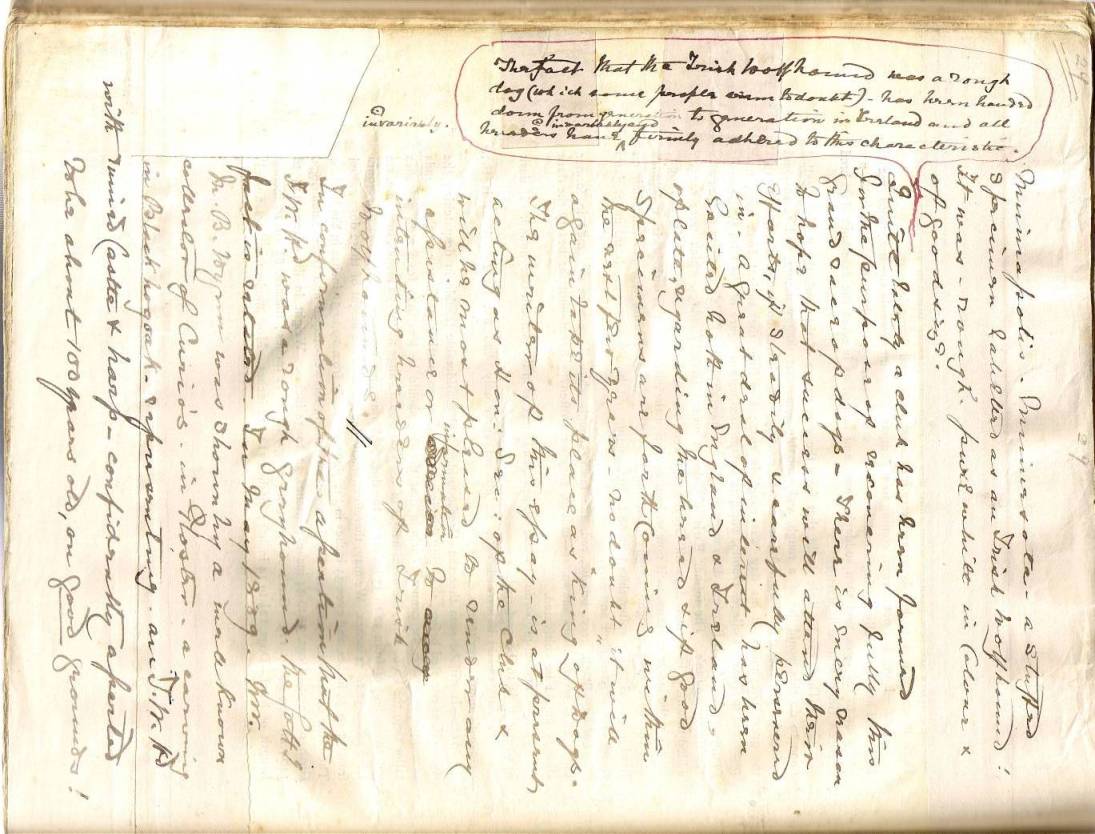 29
29
Minniapolis. Minniesota - a stuffed
specimen labelled as an Irish Wolfhound!
It was - rough. pure white in Colour &
of good size?
Quite lately a club has been formed
for the purpose of recovering fully this
grand race of dogs - There is every reason
to hope that success will attend their
efforts, if steadily & carefully persevered
in - a great deal of interest has been
excited both in England & Ireland -
of late, regarding the breed & if good
specimens are forthcoming within
the next two years - no doubt it will
again take its place as "king of dogs".
The writer of this essay - is at present
acting as Hon: Sec: of the Club &
will be most pleased to render any
assistance or information to any
intending breeders of Irish
Wolfhounds. //
The fact that the Irish Wolfhound was a rough
dog (which some people seem to doubt) - has been handed
down from generation to generation in Ireland and all
breeders have firmly adhered to this characteristic.
invariably
invariably.
In confirmation of the assertion that the
I.W.H. was a rough greyhound the foll:g
fact is related - In May 1892 - Mr.
B. Wynn was shown by a well known
collector of Curios - in Glo'ster - a carving
in Black bog oak - representing - an I.W.H
with ruined Castle & harp - confidently asserted
to be about 100 years old, on good grounds!